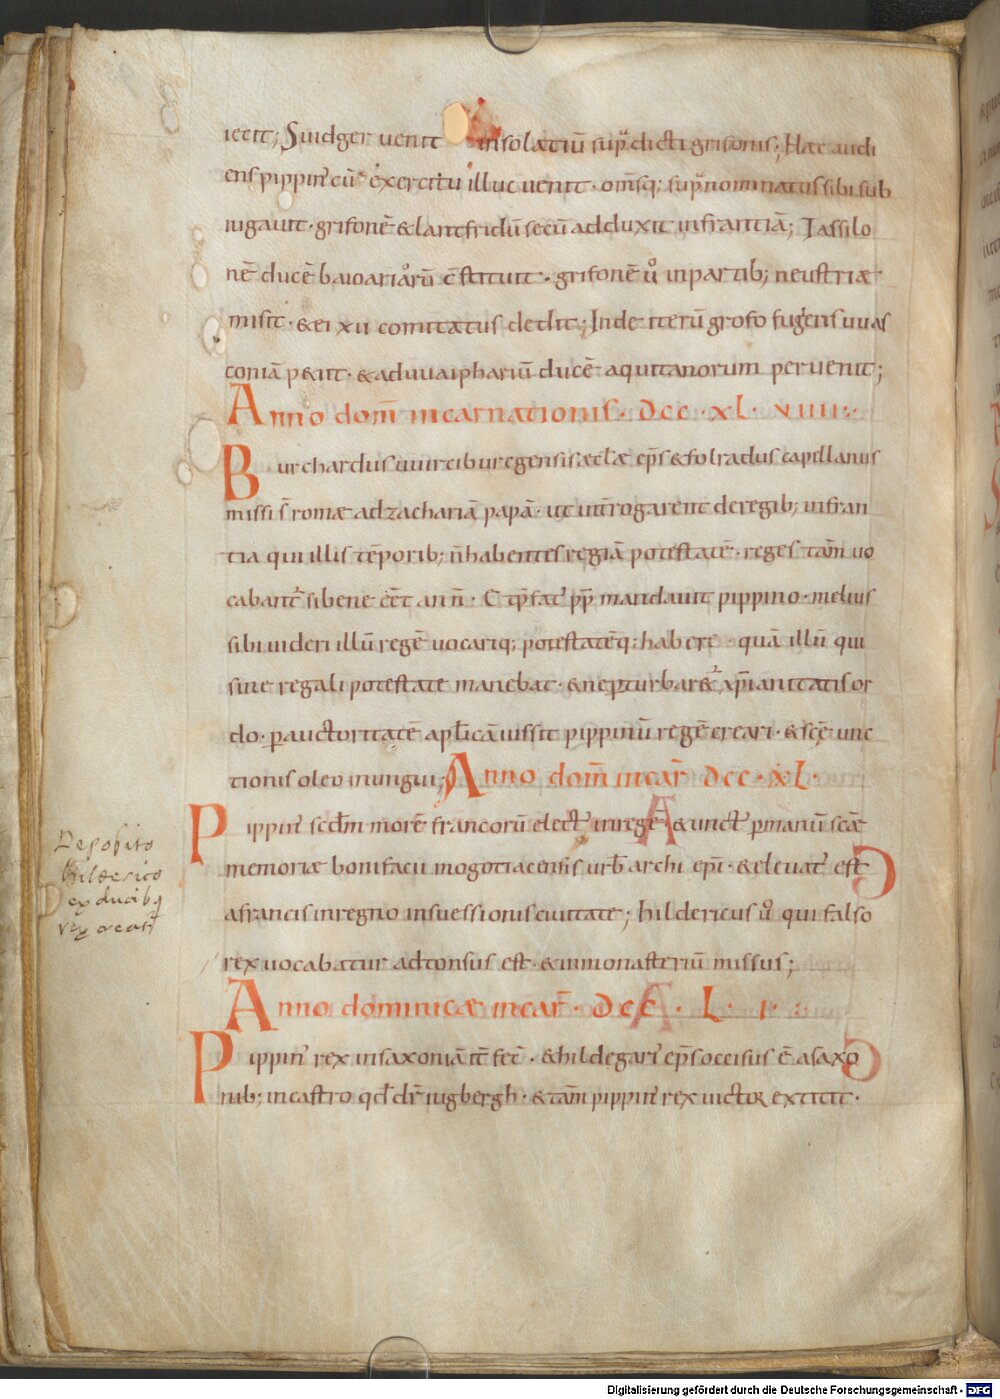 iecit; Suidger uenit insolatiū supͣdicti grisonis; Haec audi
ens pippin' cū exercitu illuc uenit · om̄sq; supͣnominatus sibi sub
iugauit · grifonē & lantfridū secū adduxit in frantiā; Tassilo
nē ducē baioarioͣrū c̄stituit · grifonē uͦ in partib; neustriae
misit · & ei xii comitatus dedit; Inde iterū grofo fugiens uuas
coniā p&iit · & ad uuaiphariū ducē aquitanorum peruenit;
Anno dom̄ incarnationis · dcc · xl · viiii ·
Burchardus uuirciburegensis aeclae ep̄s & folradus capellanus
missi s̄ romae ad zachariā papā · ut int̄rogarent de regib; in fran
tia qui illis tēporib; n̄ habentes regiā potestatē · reges tam̄ uo
cabant' si bene eēt an n̄ · & p̄fat' pp̄ mandauit pippino · melius
sibi uideri illū regē uocariq; potestatēq; habere · quā illū qui
sine regali potestate manebat · & ne p̱turbar&' xp̄ianitatis or
do · p̱ auctoritatē apl̄icā iussit pippinū regē creari · & sc̄ę unc
tionis oleo inungui; Anno dom̄ incar̄ dcc · xl ·
Pippin' scd̄m morē francorū elect' in regē & unct' p̱ manū scāe
memoriae bonifacii mogotiacensis urb̄ archi ep̄i · & eleuat' est
a francis in regno in suessionis ciuitate; hildericus uͦ qui falso
rex uocabatur adtonsus est · & in monasteriū missus;
Deposito
hilderico
ex ducibq
rex creat'
Anno dominicae incar̄ · dcc · L · i ·
Pippin' rex in saxoniā it̄ fec' · & hildegari' ep̄s occisus ē a saxo
nib; in castro qd̄ dr̄ iugbergh · & tam̄ pippin' rex uictor extitit ·